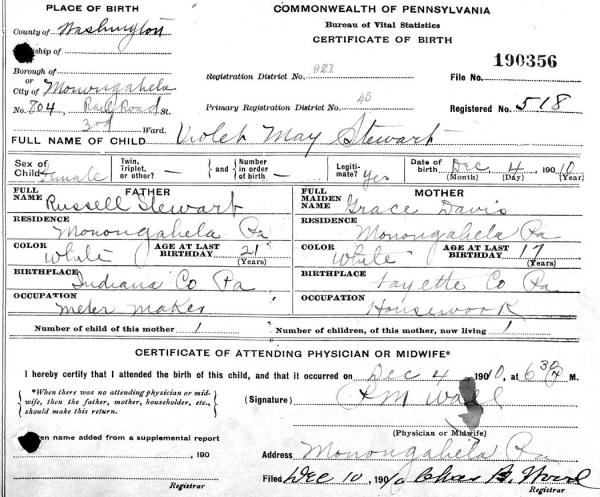 PLACE OF BIRTH
COMMONWEALTH OF PENNSYLVANIA
Bureau of Vital Statistics
CERTIFICATE OF BIRTH
County of Washington
ship of
Borough of
or
City of Monongahela
No. 804, Rail Road St.
3rd Ward.
Registration District No. 927
Primary Registration District No. 45
190356
File No.
Registered No. 518
FULL NAME OF CHILD Violet May Stewart
Sex of Child Female
Twin, Triplet, or other? —
and Number in order of birth —
Legitimate? Yes
Date of birth Dec 4 , 1910
(Month) (Day) (Year)
FATHER
FULL NAME Russell Stewart
RESIDENCE
Monongahela Pa
COLOR White
AGE AT LAST BIRTHDAY 21
(Years)
BIRTHPLACE
Indiana Co Pa
OCCUPATION
Meter Maker
MOTHER
FULL MAIDEN NAME Grace Davis
RESIDENCE
Monongahela Pa
COLOR White
AGE AT LAST BIRTHDAY 17
(Years)
BIRTHPLACE
Fayette Co Pa
OCCUPATION
Housework
Number of child of this mother 1
Number of children, of this mother, now living 1
CERTIFICATE OF ATTENDING PHYSICIAN OR MIDWIFE*
I hereby certify that I attended the birth of this child, and that it occurred on Dec 4 , 1910, at 6 30 M.
*When there was no attending physician or midwife, then the father, mother, householder, etc., should make this return.
(Signature)
(Physician or Midwife)
en name added from a supplemental report
, 190
Registrar
Address Monongahela Pa
Filed Dec 10 , 190 Chas B. Wood
Registrar